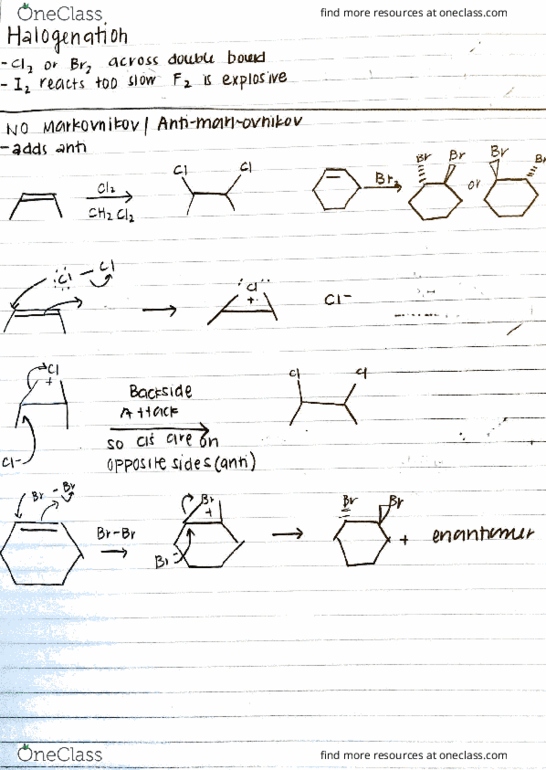 OneClass
find more resources at oneclass.com
Halogenation
- Cl2 or Br2 across double bond
- I2 reacts too slow F2 is explosive
NO Markovnikov / Anti-markovnikov
- adds anti
Cl2
CH2Cl2
Cl Cl
Br2
Br Br or Br Br
:Cl - Cl
Cl
+
Cl-
Cl
+
Cl-
Backside
Attack
so cls are on
opposite sides (anti)
Cl Cl
Br - Br
Br-Br
Br
+
Br-
Br Br
+ enantiomer
OneClass
find more resources at oneclass.com